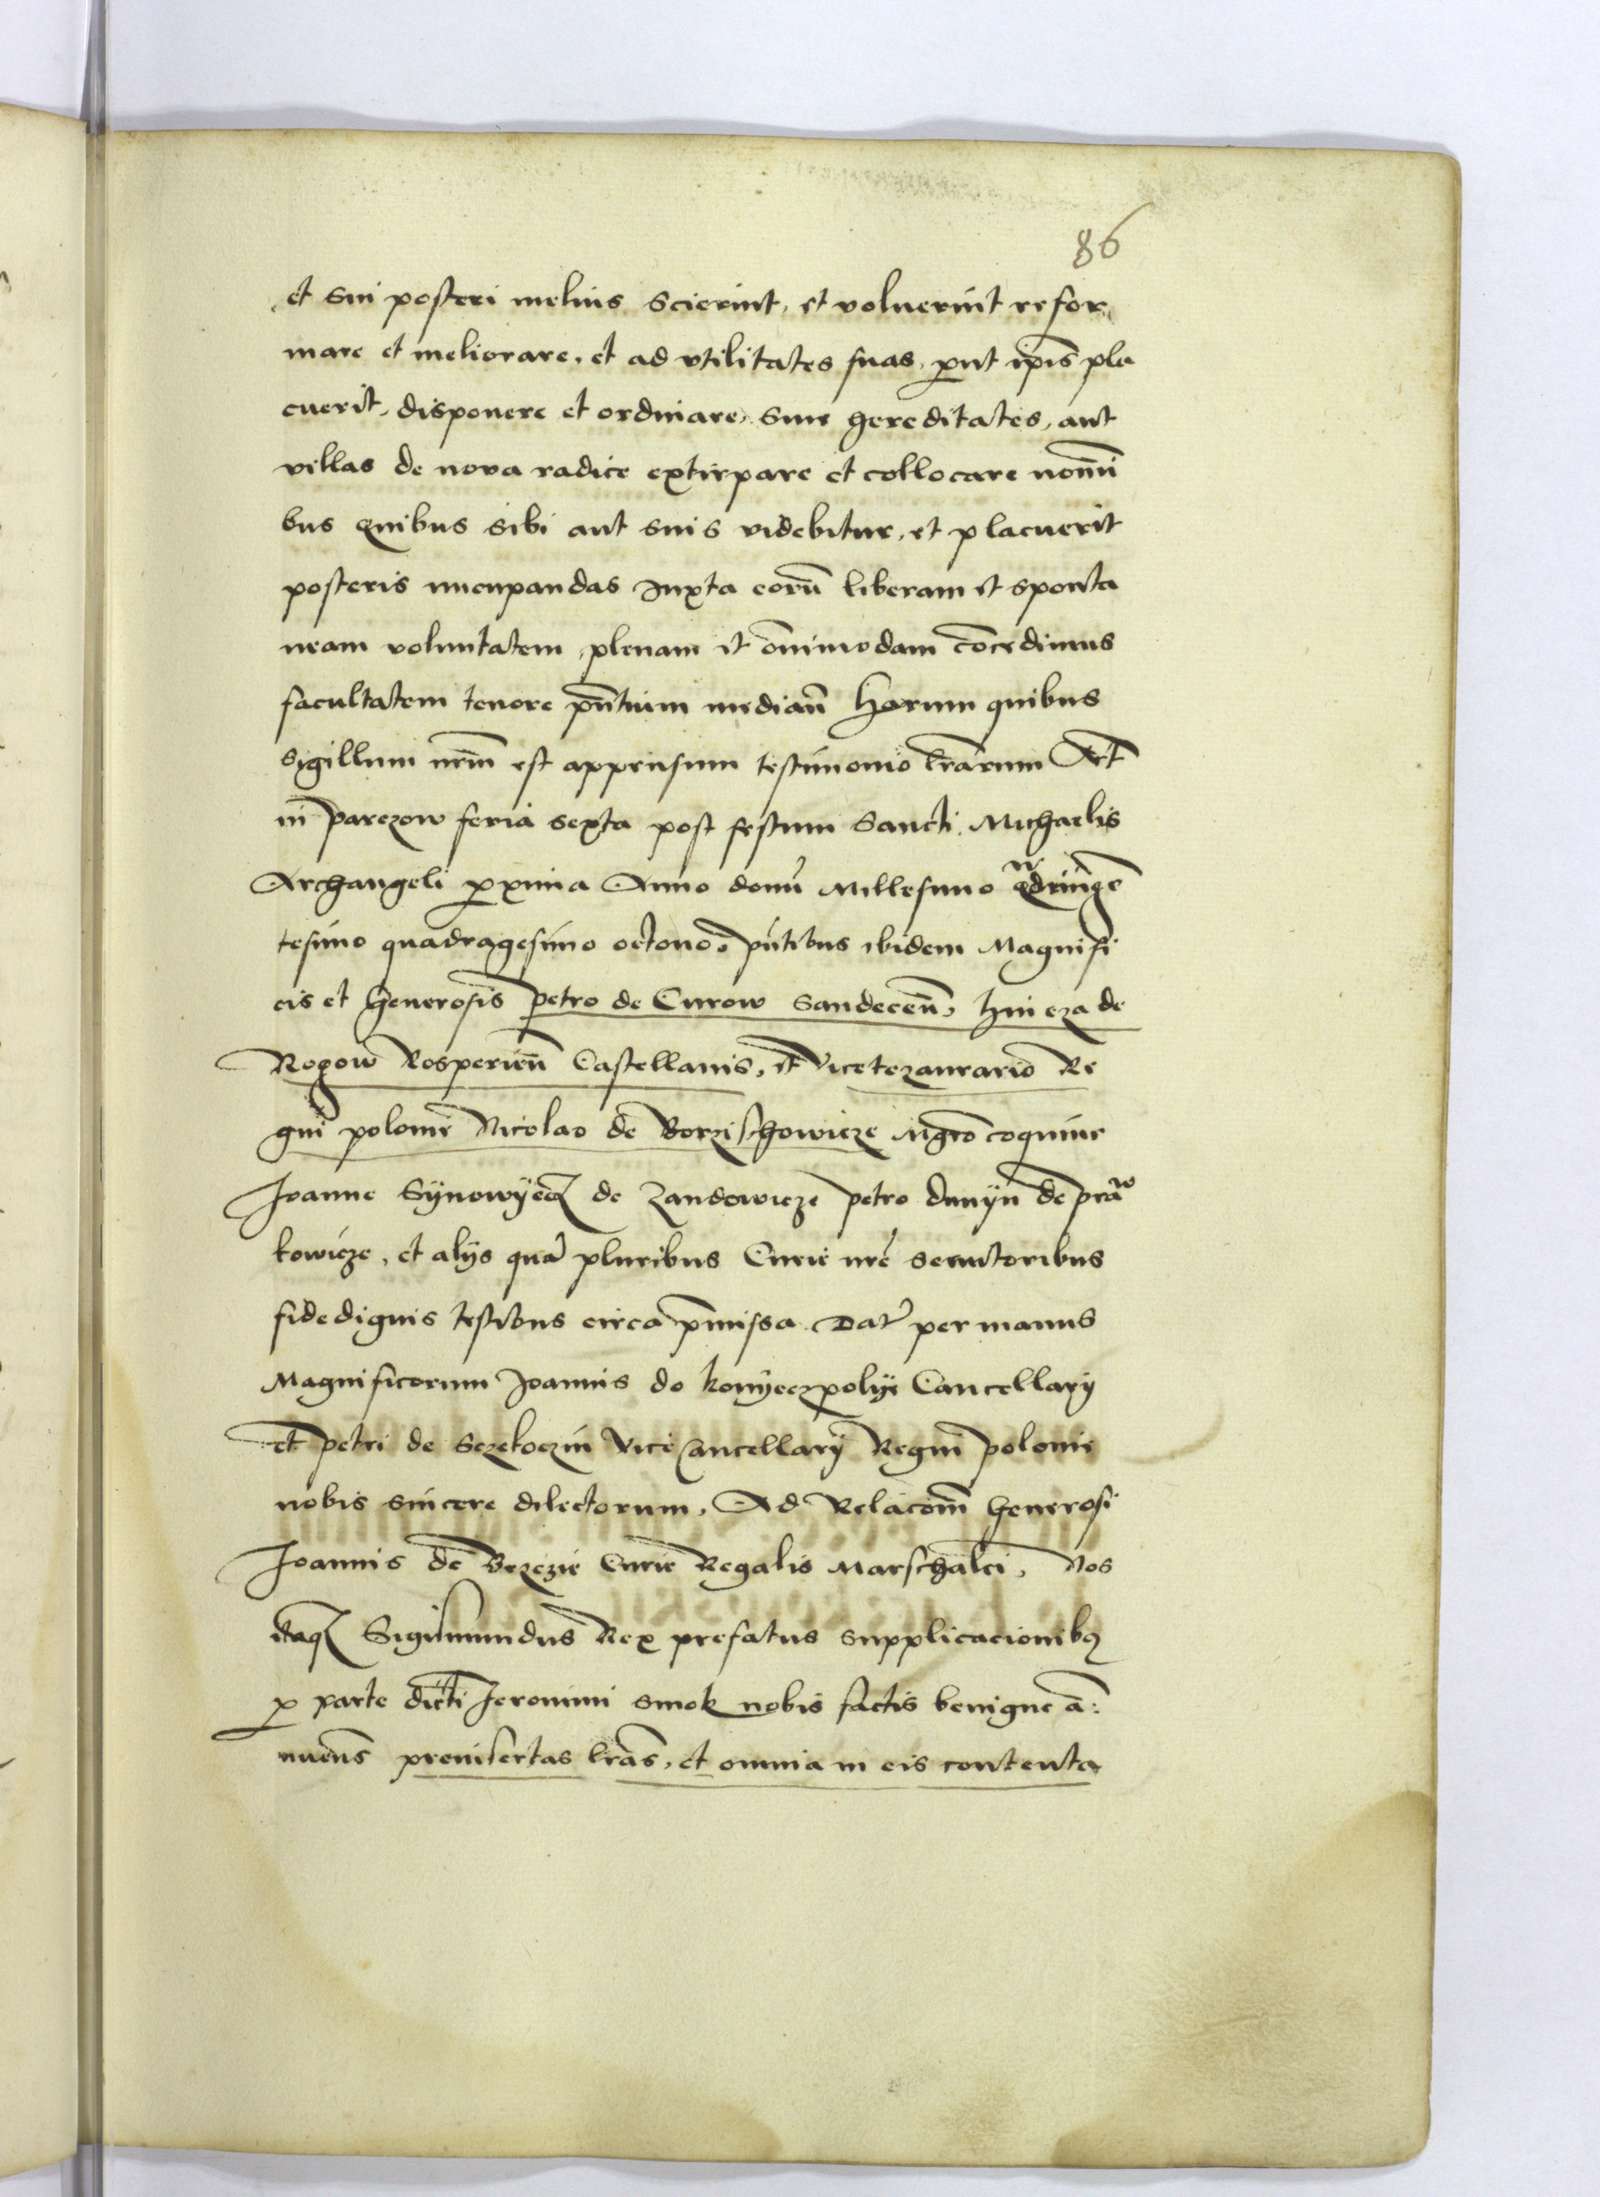 86
et sui posteri melius scierint, et voluerint refor
mare et meliorare, et ad vtilitates suas, put ipis pla
cuerit, disponere et ordinare, sine hereditates, aut
villas de nova radice extirpare et collocare nomi
bus quibus sibi aut suis videbitur, et placuerit
posteris nucupandas Iuxta eorū liberam et sponta
neam voluntatem, plenam et om̄imodam cōcedimus
facultatem tenore pn̄tium median̄ Harum quibus
sigillum nr̄m est appensum testimonio lr̄arum Act
in parczow feria sexta post festum Sancti Michaelis
Archangeli pxima Anno domī Millesimo qdringē
tesimo quadragesimo octono, pn̄tibus ibidem Magnifi
cis et Generosis petro de Curow Sandeceñ, Hincza de
Rogow Rosperieñ Castellanis, et Vicetezaurario Re
gni polonie Nicolao de Borzischowicze Mgrō coquine
Joanne Synowyecz de Zandowicze petro dunyn de pra w
kowicze, et alys quā pluribus Curie nrē seruitoribus
fidedignis testibus circa pmissa Dat per manus
Magnificorum Joannis de konyeczpolye Cancellary
et petri de Sczekoczin Vicecancellary Regni polonie
nobis sincere dilectorum, Ad Relacōm Generosi
Joannis de Brzezie Curie Regalis Marschalci, Nos
itaq Sigismundus Rex prefatus supplicacionibq
p parte dicti Jeronimi smok nobis factis benigne ā:
nuens preinsertas lr̄as, et omnia in eis contenta